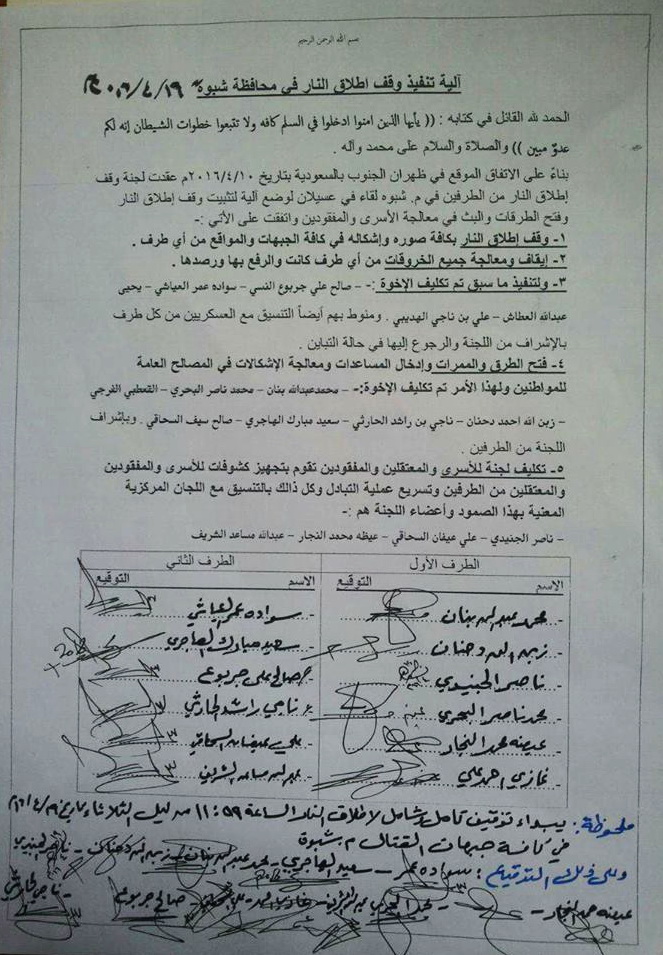 بسم الله الرحمن الرحيم
آلية تنفيذ وقف اطلاق النار في محافظة شبوة ٢٠١٦/٤/١٩م
الحمد لله القائل في كتابه : (( يأيها الذين امنوا ادخلوا في السلم كافه ولا تتبعوا خطوات الشيطان إنه لكم
عدوٌ مبين )) والصلاة والسلام على محمد وآله .
بناءً على الاتفاق الموقع في ظهران الجنوب بالسعودية بتاريخ ٢٠١٦/٤/١٠م عقدت لجنة وقف
إطلاق النار من الطرفين في م. شبوه لقاء في عسيلان لوضع آلية لتثبيت وقف إطلاق النار
وفتح الطرقات والبث في معالجة الأسرى والمفقودين واتفقت على الأتي :-
١- وقف إطلاق النار بكافة صوره وإشكاله في كافة الجبهات والمواقع من أي طرف .
٢- إيقاف ومعالجة جميع الخروقات من أي طرف كانت والرفع بها ورصدها .
٣- ولتنفيذ ما سبق تم تكليف الإخوة :- – صالح علي جربوع النسي – سواده عمر العياشي – يحيى
عبدالله العطاش – علي بن ناجي الهديبي . ومنوط بهم أيضاً التنسيق مع العسكريين من كل طرف
بالإشراف من اللجنة والرجوع إليها في حالة التباين .
٤- فتح الطرق والممرات وإدخال المساعدات ومعالجة الإشكالات في المصالح العامة
للمواطنين ولهذا الأمر تم تكليف الإخوة:- – محمدعبدالله بنان – محمد ناصر البحري – القعطبي الفرجي
– زبن الله احمد دحنان – ناجي بن راشد الحارثي – سعيد مبارك الهاجري – صالح سيف السحاقي . وبإشراف
اللجنة من الطرفين .
٥- تكليف لجنة للأسرى والمعتقلين والمفقودين تقوم بتجهيز كشوفات للأسرى والمفقودين
والمعتقلين من الطرفين وتسريع عملية التبادل وكل ذالك بالتنسيق مع اللجان المركزية
المعنية بهذا الصمود وأعضاء اللجنة هم :-
– ناصر الجنيدي – علي عيفان السحاقي – عيظه محمد النجار – عبدالله مساعد الشريف
الطرف الأول الطرف الثاني
الاسم التوقيع الاسم التوقيع
- محمد عبدالله بنان - سواده عمر العياشي
- زبن الله دحنان - سعيد مبارك الهاجري
- ناصر الجنيدي - صالح علي جربوع
- محمد ناصر البحري - ناجي راشد الحارثي
- عيضه محمد النجار - علي عيفان السحاقي
- غازي احمد علي - عبدالله مساعد الشريف
ملحوظة : يبداء توقيف كامل وشامل لاطلاق النار الساعة ١١:٥٩ من ليل الثلاثاء بتاريخ ١٩/٤/٢٠١٦
في كافة جبهات القتال م/ شبوة
وعلى ذلك التوقيع : سواده عمر – سعيد الهاجري – محمد عبدالله بنان – زبن الله دحنان – ناصر الجنيدي
عيضه محمد النجار – محمد البحري – صالح جربوع – ناجي الحارثي